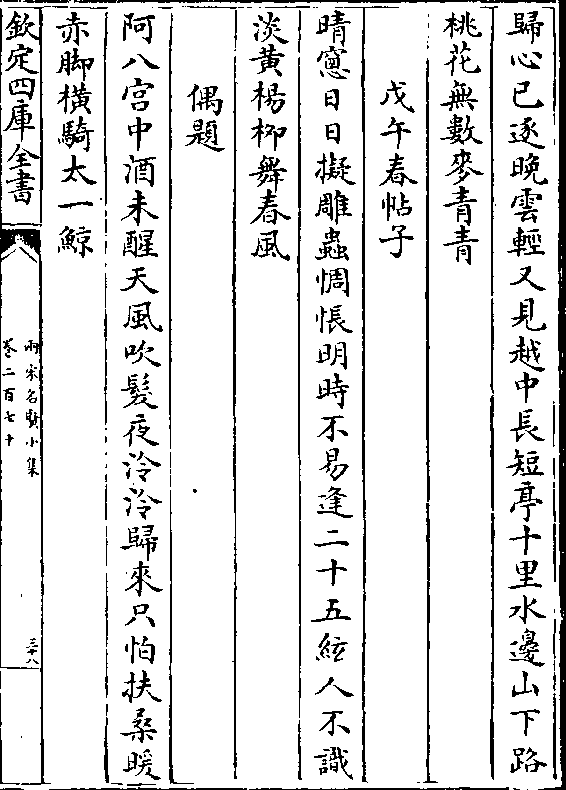 歸心已逐晚雲輕又見越中長短亭十里水邊山下路
桃花無數麥青青
戊午春帖子
晴窻日日擬雕蟲惆悵明時不易逢二十五絃人不識
淡黄楊柳舞春風
偶題
阿八宫中酒未醒天風吹髮夜泠泠歸來只怕扶桑暖
赤脚横騎太一鯨
欽定四庫全書
兩宋名賢小集
卷二百七十
三十八